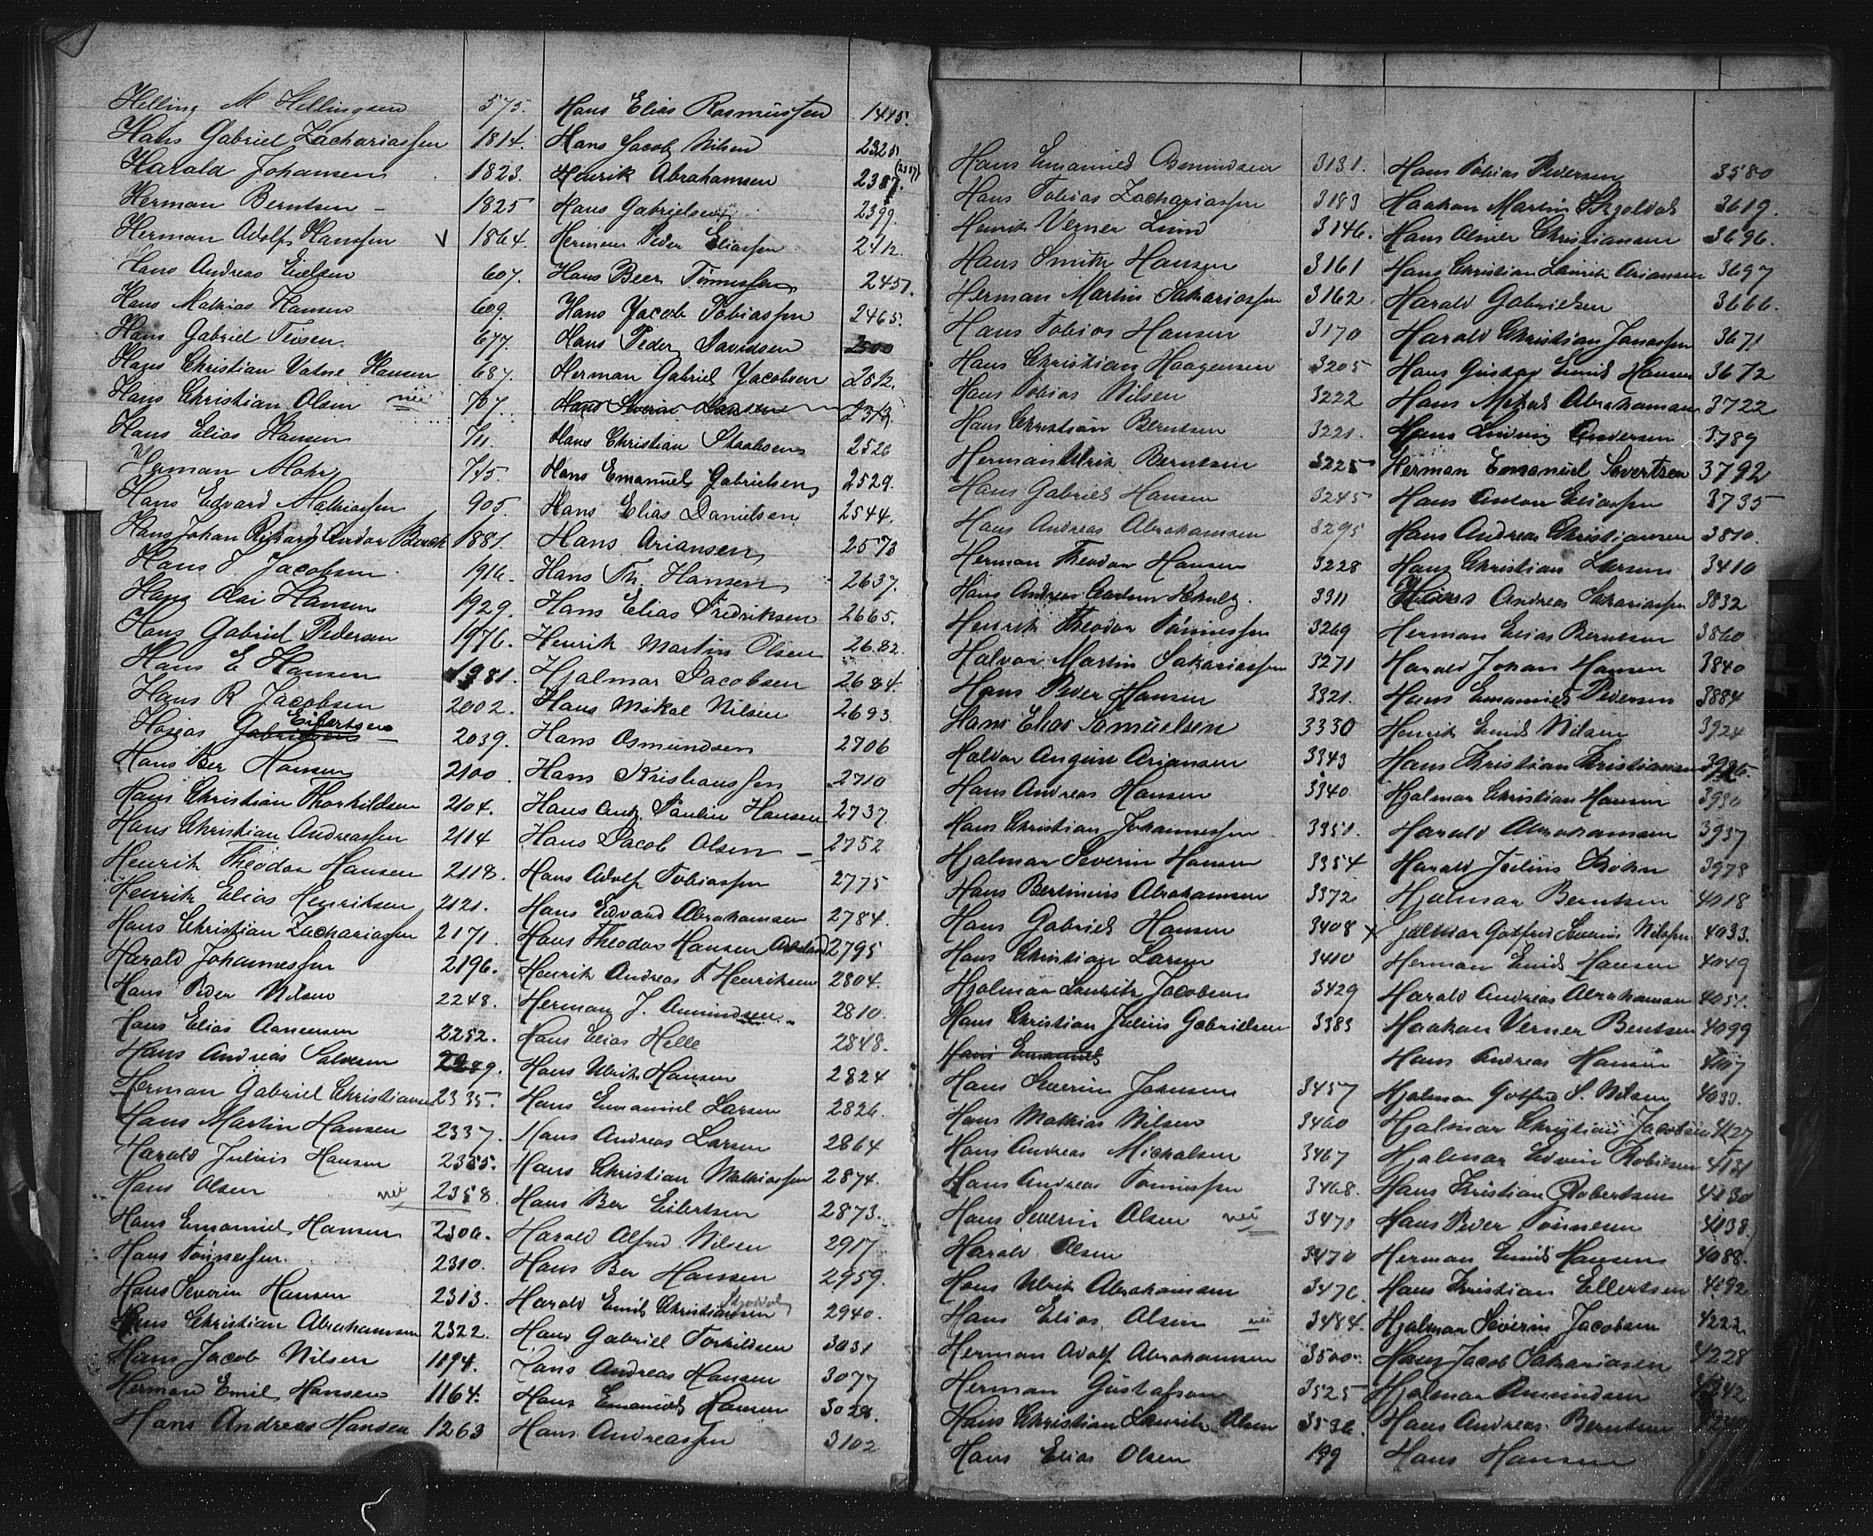 Helling M Hellingsen 575.
Hans Gabriel Zachariassen 1814.
Harald Johansen 1823.
Herman Berntsen 1825
Herman Adolf Hanssen 1864.
Hans Andreas Eielsen 607.
Hans Mathias Hansen 609.
Hans Gabriel 677.
Hans Christian Hansen 687.
Hans Christian Olsen nei 707.
Hans Elias Hansen 711
Herman Mohr 715.
Hans Edvard Mathiassen 905.
Hans Johan 1881.
Hans J Jacobsen 1916.
Hans Olai Hansen 1929.
Hans Gabriel Pedersen 1976.
Hans E Hansen 1981.
Hans R Jacobsen 2002.
Eilertsen
Gabrielsen 2039.
Hans Ber Hansen 2100
Hans Christian Thorkildsen 2104.
Hans Christian Andreassen 2114
Henrik Theodor Hansen 2118.
Henrik Elias Henriksen 2121.
Hans Christian Zachariassen 2171.
Harald Johannessen 2196.
Hans Peder Nilsen 2248.
Hans Elias Aanensen 2252.
Hans Andreas Salvesen 2289.
Herman Gabriel Christiansen 2335.
Hans Martin Hansen 2337.
Harald Julius Hansen 2355.
Hans Olsen nei 2358.
Hans Emanuel Hansen 2306.
Hans Tønnessen 2310.
Hans Severin Hansen 2313.
Hans Christian Abrahamsen 2322.
Hans Jacob Nilsen 1194.
Herman Emil Hansen 1164.
Hans Andreas Hansen 1263
Hans Elias Rasmussen 1445.
Hans Jacob Nilsen 2325
Henrik Abrahamsen 2387.
Hans Gabrielsen 2399.
Herman Peder Eliassen 2412.
Hans Beer Tønnessen 2457.
Hans Jacob Tobiassen 2465.
Hans Peder Davidsen 2500
Herman Gabriel Jacobsen 2512.
Hans Severin
Hans Christian 2526
Hans Emanuel Gabrielsen 2529.
Hans Elias Danielsen 2544.
Hans Ariansen 2573
Hans Th. Hansen 2637.
Hans Elias Fredriksen 2665.
Henrik Martin Olsen 2682.
Hjalmar Jacobsen 2684.
Hans Mikal Nilsen 2693
Hans Osmundsen 2706
Hans Kristianssen 2710
Hans Paulin Hansen 2737
Hans Jacob Olsen 2752
Hans Adolf Tobiassen 2775
Hans Edvard Abrahamsen 2784.
Hans Theodor Hansen 2795
Henrik Andreas F Henriksen 2804.
Herman J. Amundsen 2810.
Hans Elias Helle 2848.
Hans Ulrik Hansen 2824
Hans Emanuel Larsen 2826.
Hans Andreas Larsen 2864
Hans Christian Mathiassen 2874.
Hans Ber Eilertsen 2873.
Harald Alfred Nilsen 2917
Hans Ber Hansen 2959.
Harald Emil Christiansen 2940.
Hans Gabriel Torkildsen 3031
Hans Andreas Hansen 3077
Hans Emanuel Hansen 3028.
Hans Andreassen 3102
Hans Emanuel Osmundsen 3131.
Hans Tobias Zachariassen 3183
Henrik Verner Lund 3146.
Hans Smith Hansen 3161
Herman Martin Sakariassen 3162
Hans Tobias Hansen 3170
Hans Christian Haagensen 3205
Hans Tobias Nilsen 3222
Hans Christian Berntsen 3221.
Herman Ulrik Berntsen 3225
Hans Gabriel Hansen 3245
Hans Andreas Abrahamsen 3295
Herman Theodor Hansen 3228
Hans Andreas Schultz. 3311
Henrik Theodor Tønnessen 3269
Halvor Martin Sakariassen 3271
Hans Peder Hansen 3321.
Hans Elias Samuelsen 3330
Halvor August Ariansen 3343
Hans Andreas Hansen 3340
Hans Christian Johannessen 3351.
Hjalmar Severin Hansen 3354
Hans Bertinius Abrahamsen 3372
Hans Gabriel Hansen 3408
Hans Christian Larsen 3410
Hjalmar Laurits Jacobsen 3429
Hans Christian Julius Gabrielsen 3383
Hans Emanuel
Hans Severin Johnsen 3457
Hans Mathias Nilsen 3460
Hans Andreas Michalsen 3467
Hans Andreas Tønnessen 3468.
Hans Severin Olsen nei 3471
Harald Olsen 3470
Hans Ulrik Abrahamsen 3476.
Hans Elias Olsen nei 3484.
Herman Adolf Abrahamsen 3500.
Herman Gustafson 3525
Hans Christian Laurits Olsen 3536.
Hans Elias Olsen 199
Hans Tobias Pedersen 3580
Haakon Martin Skjoldal 3619.
Hans Oliver Christiansen 3696.
Hans Christian Laurits Ariansen 3697
Harald Gabrielsen 3666.
Harald Christian Jonassen 3671
Hans Gustav Emil Hansen 3672
Hans Mikal Abrahamsen 3722
Hans Ludvig Andersen 3789
Herman Emanuel Sivertsen 3792
Hans Anton Eliassen 3735
Hans Andreas Christiansen 3810.
Hans Christian Larsen 3410
Hans Andreas Sakariassen 3832
Herman Elias Berntsen 3860
Harald Johan Hansen 3840
Hans Emanuel Pedersen 3884
Henrik Emil Nilsen 3924
Hans Kristian Kristiansen
Hjalmar Christian Hansen 3930
Harald Abrahamsen 3937
Harald Julius 3978
Hjalmar Berntsen 4018
x Hjalmar Gotfred Severin Nilssen 4033.
Herman Emil Hansen 4049
Harald Andreas Abrahamsen 4051.
Haakon Verner Bentsen 4099
Hans Andreas Hansen 4107
Hjalmar Gotfred S. Nilsen 4033.
Hjalmar Christian Jacobsen 4127
Hjalmar Edvin Robertsen 4131
Hans Kristian Robertsen 4130
Hans Peder Tønnesen 4138.
Herman Emil Hansen 4088.
Hans Kristian Ellertsen 4192
Hjalmar Severin Jacobsen 4222
Hans Jacob Sakariasen 4228
Hjalmar Amundsen 4242
Hans Andreas Berntsen
Hans Hansen